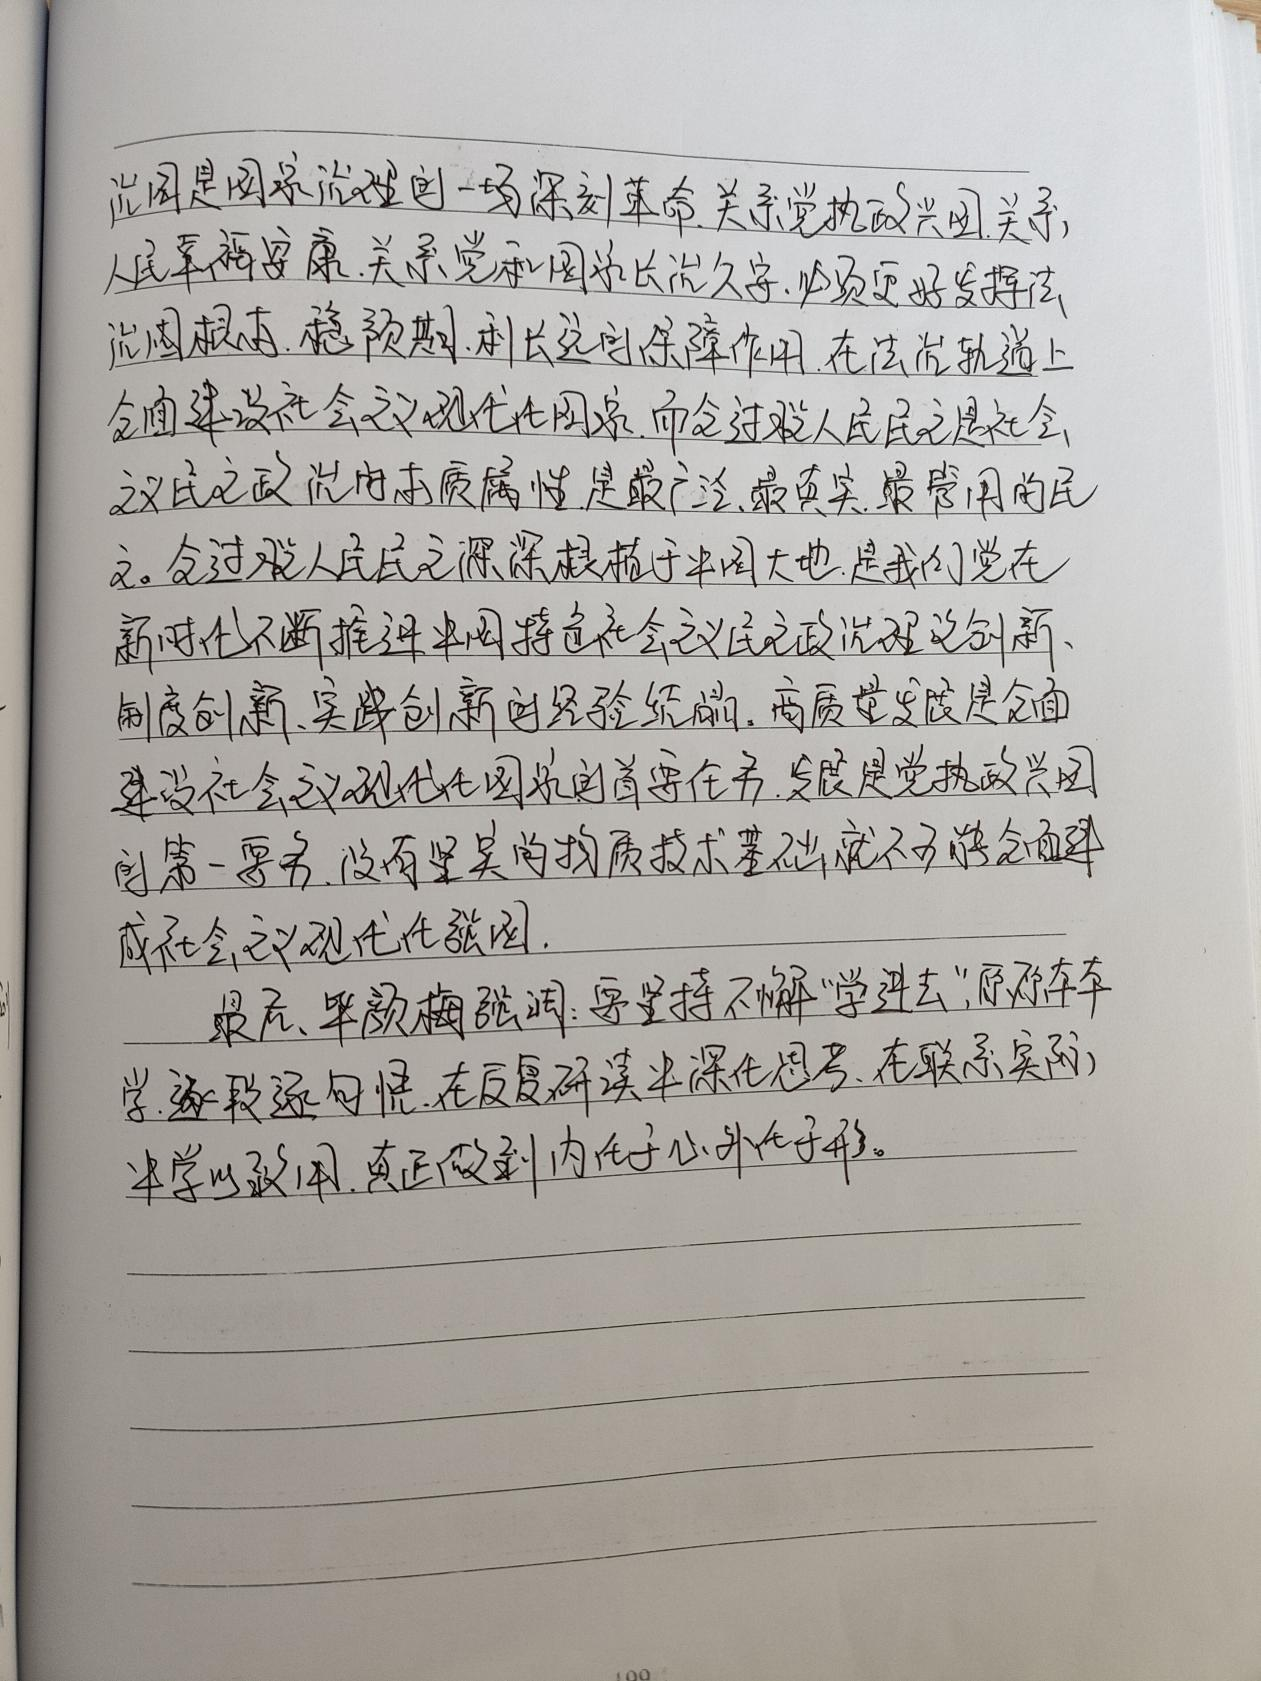 治国是国家治理的一场深刻革命、关系党执政兴国、关系
人民幸福安康、关系党和国家长治久安、必须更好发挥法
治固根本、稳预期、利长远的保障作用、在法治轨道上
全面建设社会主义现代化国家、而全过程人民民主是社会
主义民主政治的本质属性、是最广泛、最真实、最管用的民
主。全过程人民民主深深根植于中国大地、是我们党在
新时代不断推进中国特色社会主义民主政治理论创新、
制度创新、实践创新的经验结晶。高质量发展是全面
建设社会主义现代化国家的首要任务、发展是党执政兴国
的第一要务、没有坚实的物质技术基础、就不可能全面建
成社会主义现代化强国.
最后、毕颜梅强调:要坚持不懈“学进去”,原原本本
学、逐段逐句悟、在反复研读中深化思考、在联系实际
中学以致用、真正做到内化于心、外化于形。